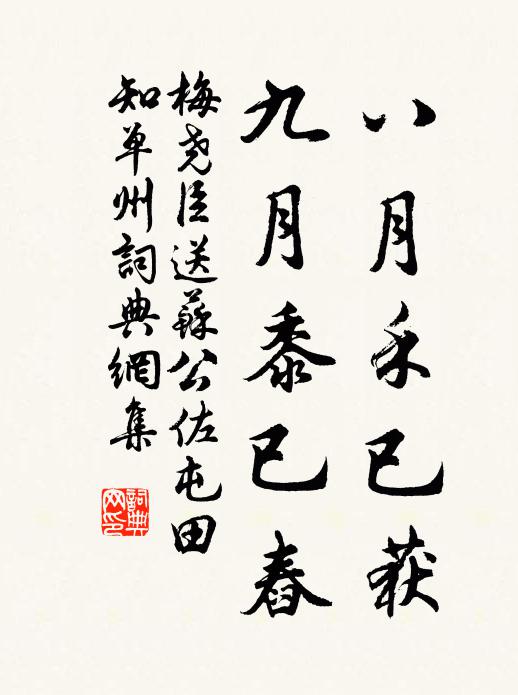 八月禾已获
九月黍已舂
梅尧臣送蘇公佐屯田
知单州詞典網集
詞典网印